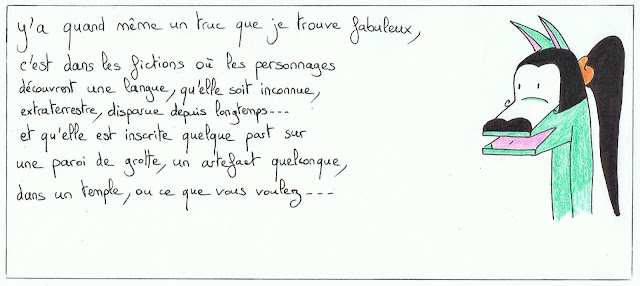 y'a quand même un truc que je trouve fabuleux,
c'est dans les fictions où les personnages
découvrent une langue, qu'elle soit inconnue,
extraterrestre, disparue depuis longtemps---
et qu'elle est inscrite quelque part sur
une paroi de grotte, un artefact quelconque,
dans un temple, ou ce que vous voulez---